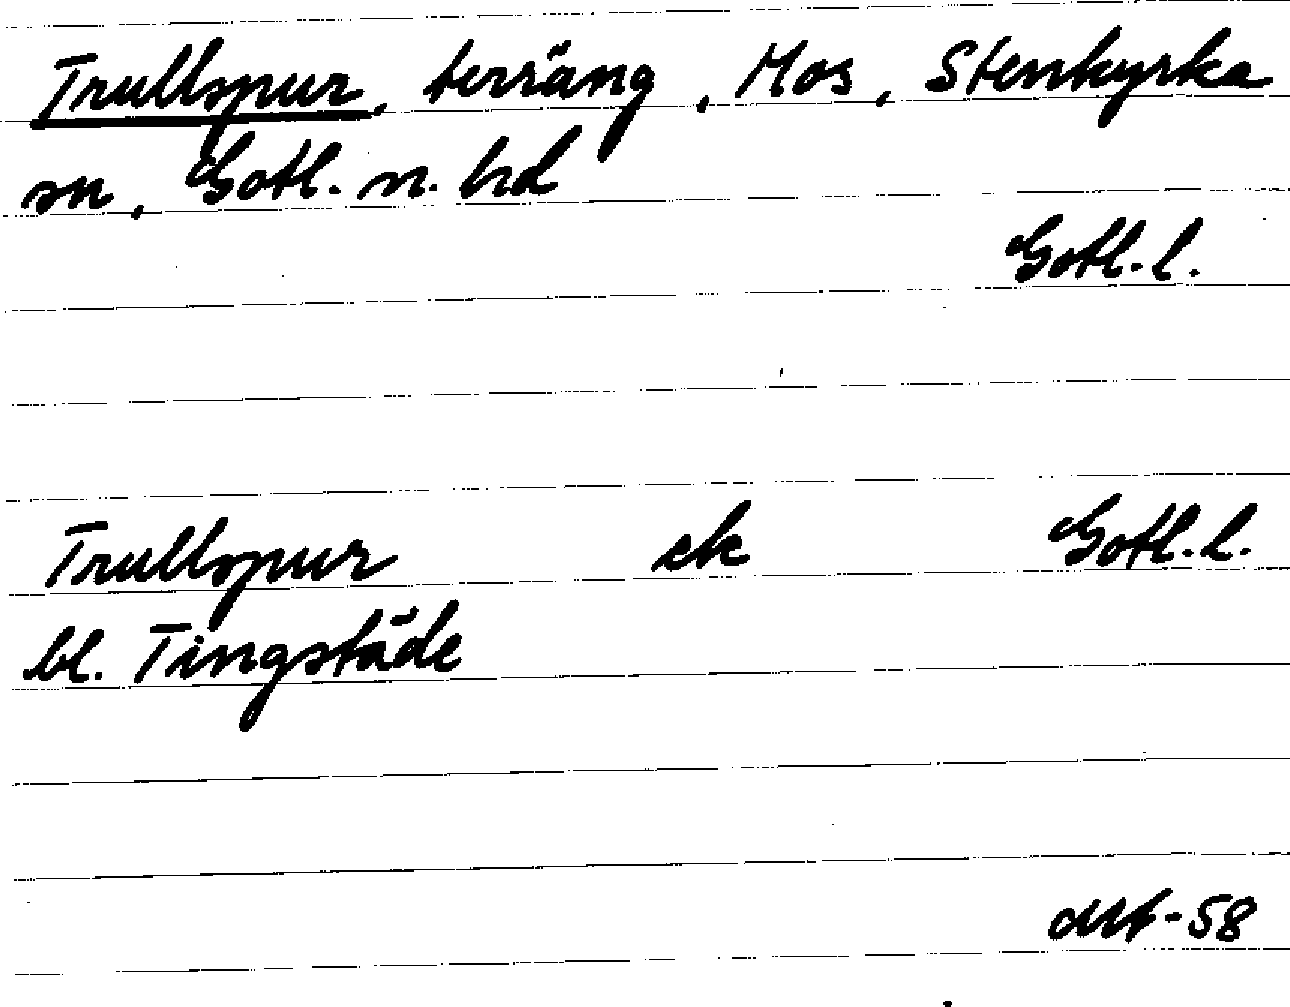 Trullspur, terräng, Mos, Stenkyrka
sn, Gotl. n. hd
Gotl. l.
Trullspur ek Gotl. l.
bl. Tingstäde
-58